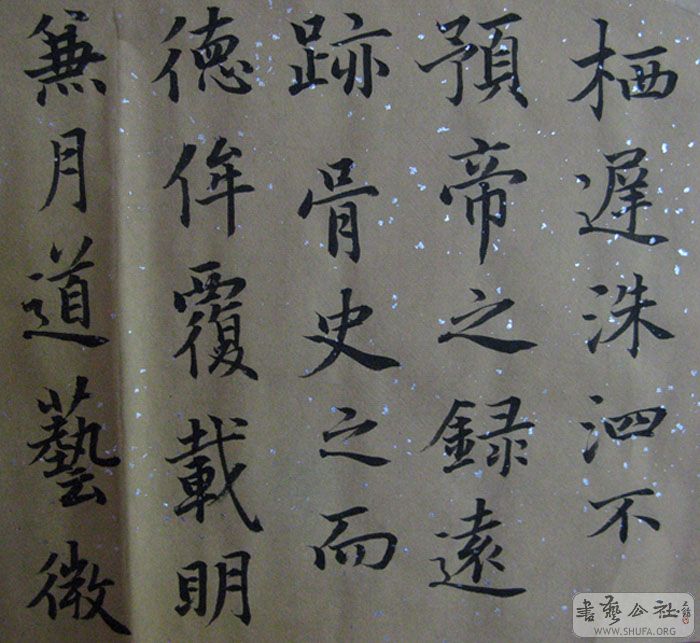 栖遲洙泗不
預帝之録遠
跡胥史之而
德侔覆載明
兼月道藝微
書藝公社
WWW.SHUFA.ORG